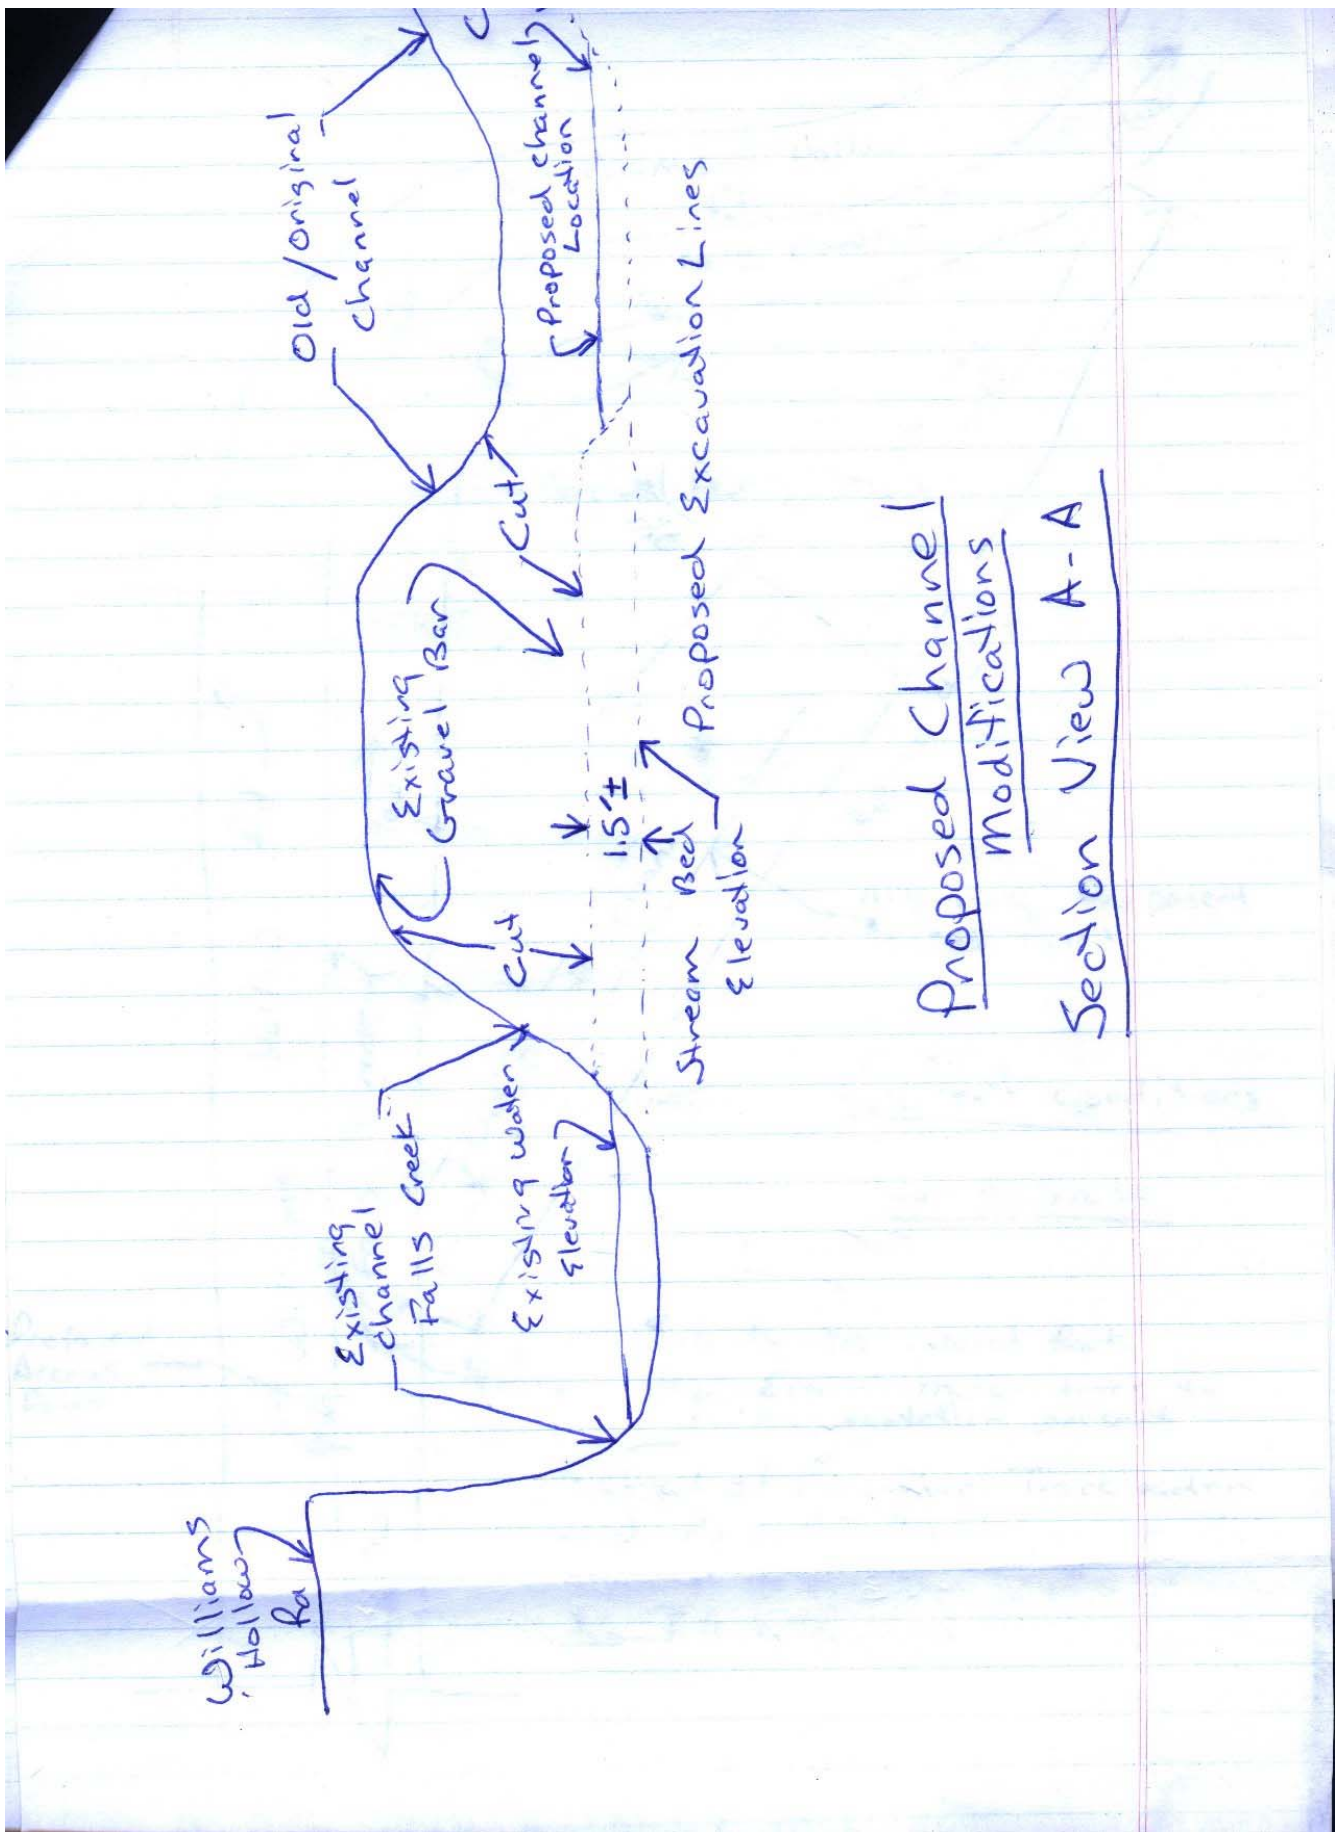 Williams
Hollow
Rd
Existing
Channel
Falls Creek
Existing Water
Elevation
Cut
Existing
Gravel Bar
1.5'±
Stream Bed
Elevation
Cut
Old/Original
Channel
Proposed Channel
Location
C
Proposed Excavation Lines
Proposed Channel
Modifications
Section View A-A